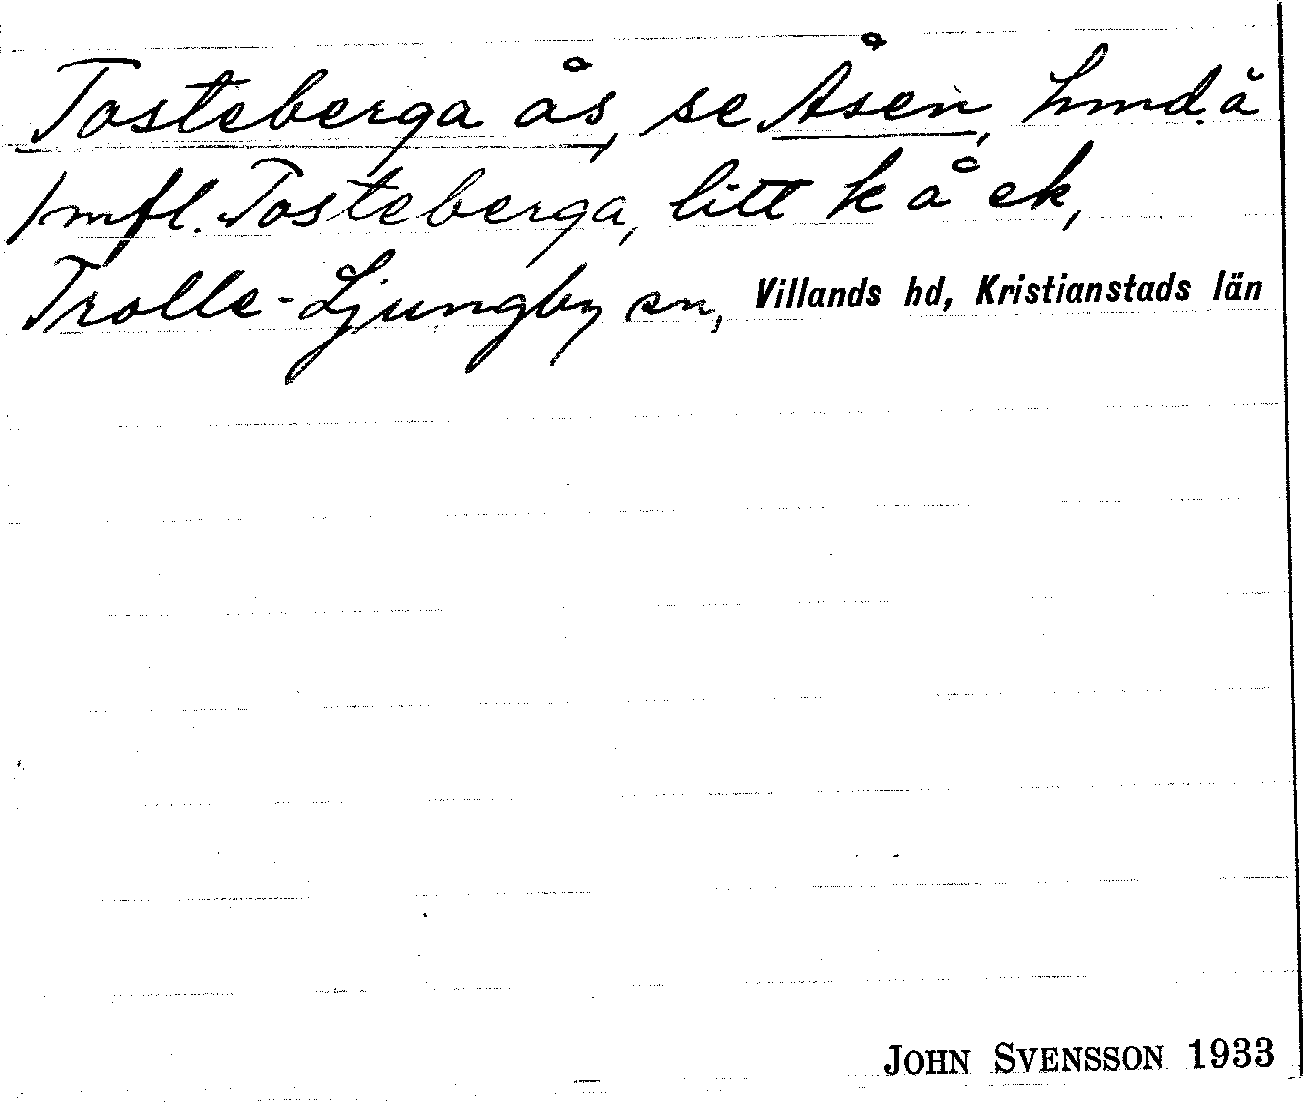 Tosteberga ås, se Åsen, hmd. å
hmfl. Tosteberga, litt k å ek,
Trolle-Ljungby sn, Villands hd, Kristianstads län
JOHN SVENSSON 1933